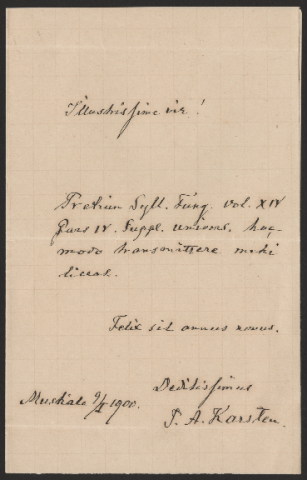 Illustrissime vir!
Pretium Syll. Fung. vol. XIV
Pars IV. Suppl. univers. hoc
modo transmittere mihi
liceat.
Felix sit annus novus.
Deditissimus
Mustiala 9/I 1900.
P. A. Karsten.